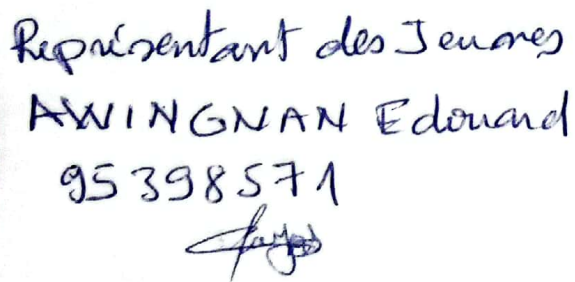 Représentant des Jeunes
AWINGNAN Edouard
95398571